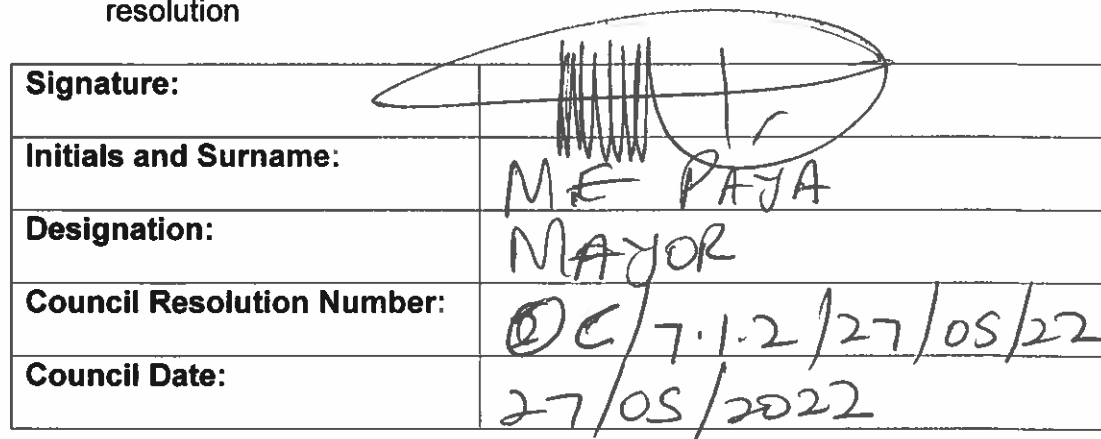 resolution
Signature:
Initials and Surname: M.E PAYA
Designation: MAYOR
Council Resolution Number: OC/7.1.2/27/05/22
Council Date: 27/05/2022